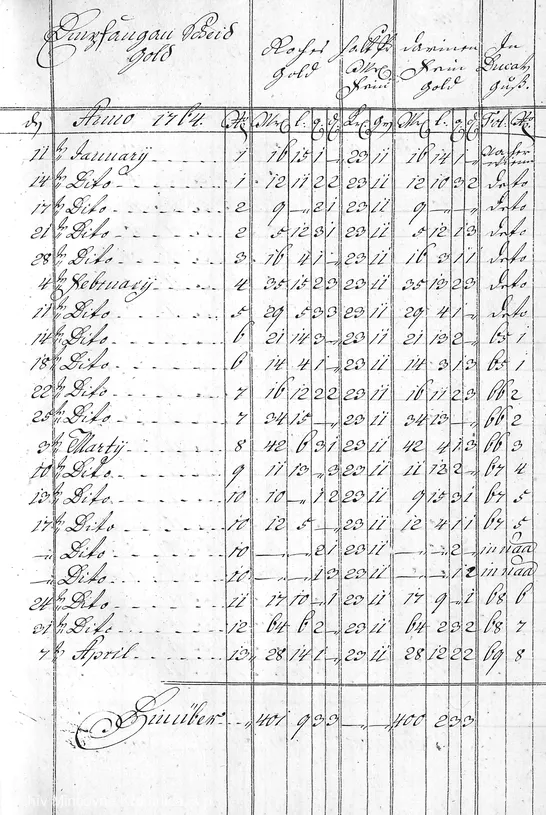 Gold
Rohes Gold
Fein
darinnen Fein Gold
In Ducat.
Anno 1764. No Mrc l. q d Mrc l. q d No
11 January 1 16 15 1 – 23 11 16 14 1 –
14 Dito 1 12 11 2 2 23 11 12 10 3 2 deto
17 Dito 2 9 – 2 1 23 11 9 – – – deto
21 Dito 2 5 12 3 1 23 11 5 12 1 3 deto
28 Dito 3 16 4 1 – 23 11 16 3 1 1 deto
4 February 4 35 15 2 3 23 11 35 13 2 3 deto
11 Dito 5 29 5 3 3 23 11 29 4 1 – deto
14 Dito 6 21 14 3 – 23 11 21 13 2 – 65 1
18 Dito 6 14 4 1 – 23 11 14 3 1 3 65 1
22 Dito 7 16 12 2 2 23 11 16 11 2 3 66 2
25 Dito 7 34 15 – 23 11 34 13 – – 66 2
3 Martij 8 42 6 3 1 23 11 42 4 1 3 66 3
10 Dito 9 11 13 – 3 23 11 11 12 2 – 67 4
13 Dito 10 10 – 1 2 23 11 9 15 3 1 67 5
17 Dito 10 12 5 – – 23 11 12 4 1 1 67 5
– Dito 10 – – 2 1 23 11 – – 2 –
– Dito 10 – – 1 3 23 11 – – 1 2
24 Dito 11 17 10 – 1 23 11 17 9 – 1 68 6
31 Dito 12 64 6 2 – 23 11 64 2 3 2 68 7
7 April 13 28 14 1 – 23 11 28 12 2 2 69 8
Hinüber 401 9 3 3 – – 400 2 3 3